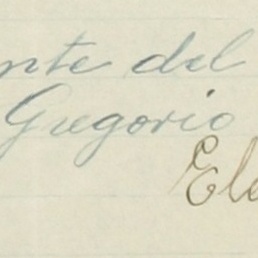 nte del
Gregorio
Ele